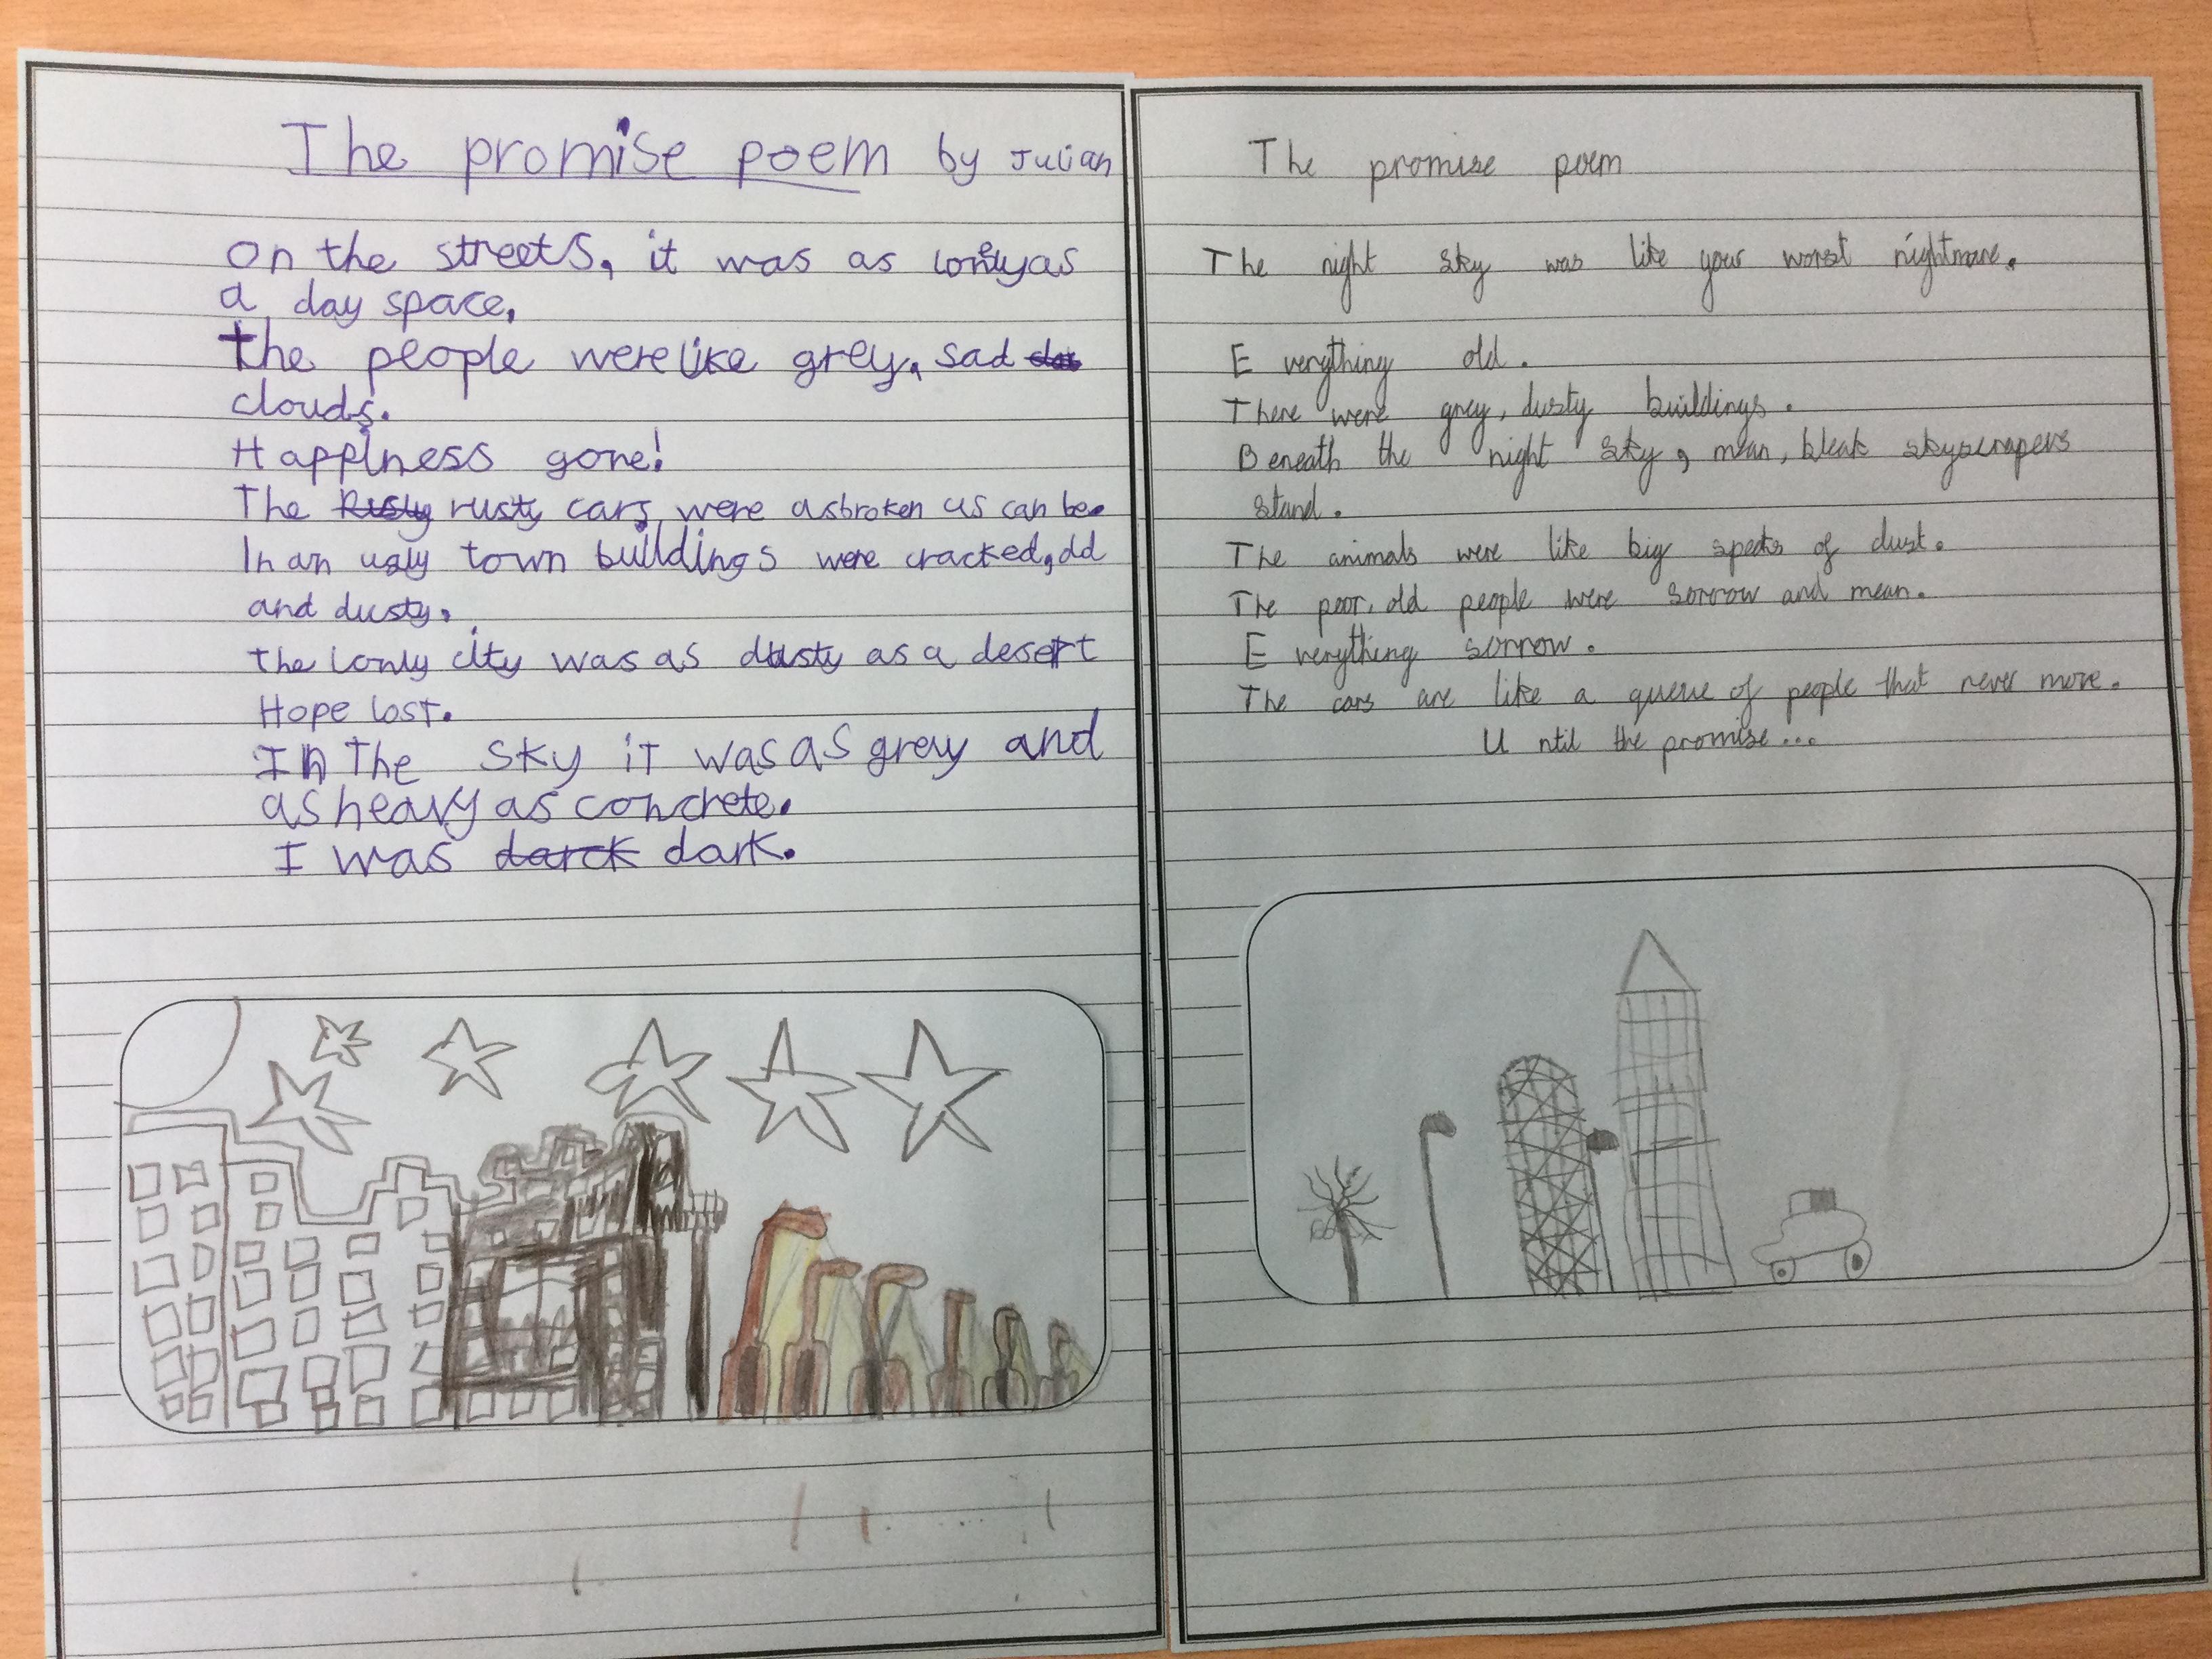 The promise poem by Julian
On the streets, it was as lonely as
a day space,
the people were like grey, sad
clouds.
Happiness gone!
The rusty cars were as broken as can be.
In an ugly town buildings were cracked, old
and dusty.
the lonly city was as dusty as a desert
Hope lost.
In The sky iT was as grey and
as heavy as concrete.
I was darck dark.
The promise poem
The night sky was like your worst nightmare.
Everything old.
There were grey, dusty buildings.
Beneath the night sky, mean, bleak skyscrapers
stand.
The animals were like big specks of dust.
The poor, old people were sorrow and mean.
Everything sorrow.
The cars are like a queue of people that never move.
Until the promise...